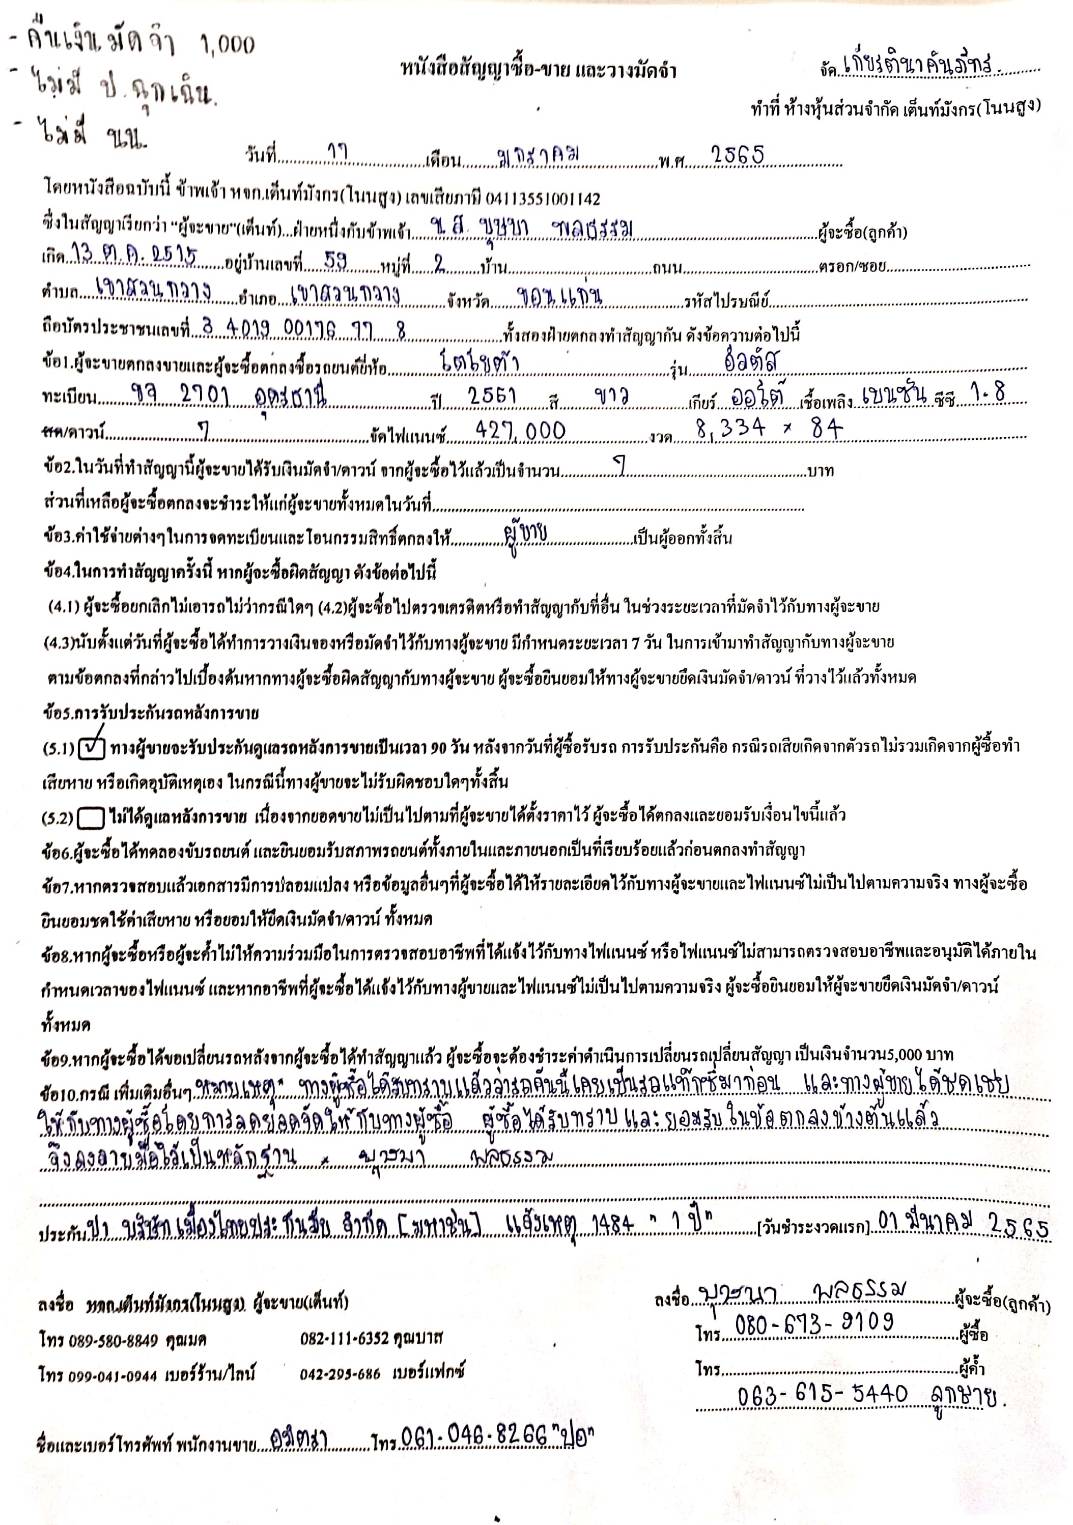 - คืนเงินมัดจำ 1,000
- ไม่มี ป.ฉุกเฉิน.
- ไม่มี นน.
หนังสือสัญญาซื้อ-ขาย และวางมัดจำ
จัด.เกียรตินาคินภัทร.
ทำที่ ห้างหุ้นส่วนจำกัด เต็นท์มังกร(โนนสูง)
วันที่ 17 เดือน มกราคม พ.ศ. 2565
โดยหนังสือฉบับนี้ ข้าพเจ้า หจก.เต็นท์มังกร(โนนสูง) เลขเสียภาษี 04113551001142
ซึ่งในสัญญาเรียกว่า "ผู้จะขาย"(เต็นท์)...ฝ่ายหนึ่งกับข้าพเจ้า น.ส. บุษบา พลธรรม ผู้จะซื้อ(ลูกค้า)
เกิด 13 ต.ค. 2515 อยู่บ้านเลขที่ 59 หมู่ที่ 2 บ้าน ถนน ตรอก/ซอย
ตำบล เขาสวนกวาง อำเภอ เขาสวนกวาง จังหวัด ขอนแก่น รหัสไปรษณีย์
ถือบัตรประชาชนเลขที่ 3 4019 00176 77 8 ทั้งสองฝ่ายตกลงทำสัญญากัน ดังข้อความต่อไปนี้
ข้อ1.ผู้จะขายตกลงขายและผู้จะซื้อตกลงซื้อรถยนต์ยี่ห้อ โตโยต้า รุ่น อัลติส
ทะเบียน ขจ 2701 อุดรธานี ปี 2551 สี ขาว เกียร์ ออโต้ เชื้อเพลิง เบนซิน ซีซี 1.8
สด/ดาวน์ 7 จัดไฟแนนซ์ 427,000 งวด 8,334 × 84
ข้อ2.ในวันที่ทำสัญญานี้ผู้จะขายได้รับเงินมัดจำ/ดาวน์ จากผู้จะซื้อไว้แล้วเป็นจำนวน 7 บาท
ส่วนที่เหลือผู้จะซื้อตกลงจะชำระให้แก่ผู้จะขายทั้งหมดในวันที่
ข้อ3.ค่าใช้จ่ายต่างๆในการจดทะเบียนและโอนกรรมสิทธิ์ตกลงให้ ผู้ขาย เป็นผู้ออกทั้งสิ้น
ข้อ4.ในการทำสัญญาครั้งนี้ หากผู้จะซื้อผิดสัญญา ดังข้อต่อไปนี้
(4.1) ผู้จะซื้อยกเลิกไม่เอารถไม่ว่ากรณีใดๆ (4.2)ผู้จะซื้อไปตรวจเครดิตหรือทำสัญญากับที่อื่น ในช่วงระยะเวลาที่มัดจำไว้กับทางผู้จะขาย
(4.3)นับตั้งแต่วันที่ผู้จะซื้อได้ทำการวางเงินจองหรือมัดจำไว้กับทางผู้จะขาย มีกำหนดระยะเวลา 7 วัน ในการเข้ามาทำสัญญากับทางผู้จะขาย
ตามข้อตกลงที่กล่าวไปเบื้องต้นหากทางผู้จะซื้อผิดสัญญากับทางผู้จะขาย ผู้จะซื้อยินยอมให้ทางผู้จะขายยึดเงินมัดจำ/ดาวน์ ที่วางไว้แล้วทั้งหมด
ข้อ5.การรับประกันรถหลังการขาย
(5.1) ✓ ทางผู้ขายจะรับประกันดูแลรถหลังการขายเป็นเวลา 90 วัน หลังจากวันที่ผู้ซื้อรับรถ การรับประกันคือ กรณีรถเสียเกิดจากตัวรถไม่รวมเกิดจากผู้ซื้อทำ
เสียหาย หรือเกิดอุบัติเหตุเอง ในกรณีนี้ทางผู้ขายจะไม่รับผิดชอบใดๆทั้งสิ้น
(5.2) ไม่ได้ดูแลหลังการขาย เนื่องจากยอดขายไม่เป็นไปตามที่ผู้จะขายได้ตั้งราคาไว้ ผู้จะซื้อได้ตกลงและยอมรับเงื่อนไขนี้แล้ว
ข้อ6.ผู้จะซื้อได้ทดลองขับรถยนต์ และยินยอมรับสภาพรถยนต์ทั้งภายในและภายนอกเป็นที่เรียบร้อยแล้วก่อนตกลงทำสัญญา
ข้อ7.หากตรวจสอบแล้วเอกสารมีการปลอมแปลง หรือข้อมูลอื่นๆที่ผู้จะซื้อได้ให้รายละเอียดไว้กับทางผู้จะขายและไฟแนนซ์ไม่เป็นไปตามความจริง ทางผู้จะซื้อ
ยินยอมชดใช้ค่าเสียหาย หรือยอมให้ยึดเงินมัดจำ/ดาวน์ ทั้งหมด
ข้อ8.หากผู้จะซื้อหรือผู้จะค้ำไม่ให้ความร่วมมือในการตรวจสอบอาชีพที่ได้แจ้งไว้กับทางไฟแนนซ์ หรือไฟแนนซ์ไม่สามารถตรวจสอบอาชีพและอนุมัติได้ภายใน
กำหนดเวลาของไฟแนนซ์ และหากอาชีพที่ผู้จะซื้อได้แจ้งไว้กับทางผู้ขายและไฟแนนซ์ไม่เป็นไปตามความจริง ผู้จะซื้อยินยอมให้ผู้จะขายยึดเงินมัดจำ/ดาวน์
ทั้งหมด
ข้อ9.หากผู้จะซื้อได้ขอเปลี่ยนรถหลังจากผู้จะซื้อได้ทำสัญญาแล้ว ผู้จะซื้อจะต้องชำระค่าดำเนินการเปลี่ยนรถเปลี่ยนสัญญา เป็นเงินจำนวน5,000 บาท
ข้อ10.กรณี เพิ่มเติมอื่นๆ หมายเหตุ" ทางผู้ซื้อได้รับทราบแล้วว่ารถคันนี้เคยเป็นรถแท็กซี่มาก่อน และทางผู้ขายได้ชดเชย
ให้กับทางผู้ซื้อโดยการลดยอดจัดให้กับทางผู้ซื้อ ผู้ซื้อได้รับทราบและยอมรับในข้อตกลงข้างต้นแล้ว
จึงลงลายมือไว้เป็นหลักฐาน × บุษบา พลธรรม
ประกัน ป1 บริษัทเมืองไทยประกันภัย จำกัด [มหาชน] แจ้งเหตุ 1484 "1 ปี" [วันชำระงวดแรก] 01 มีนาคม 2565
ลงชื่อ หจก.เต็นท์มังกร(โนนสูง) ผู้จะขาย(เต็นท์)
ลงชื่อ บุษบา พลธรรม ผู้จะซื้อ(ลูกค้า)
โทร 089-580-8849 คุณมด 082-111-6352 คุณบาส
โทร. 080-673-9109 ผู้ซื้อ
โทร 099-041-0944 เบอร์ร้าน/ไลน์ 042-295-686 เบอร์แฟกซ์
โทร. ผู้ค้ำ
063-615-5440 ลูกชาย.
ชื่อและเบอร์โทรศัพท์ พนักงานขาย อมิตรา โทร. 061-046-8266 "ปอ"